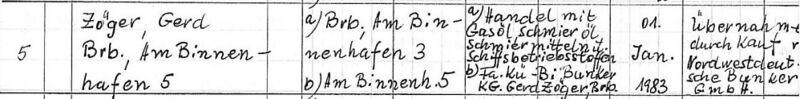 Zöger, Gerd
Brb., Am Binnen-
hafen 5
5
a) Brb, Am Bin-
nenhafen 3
b) Am Binnenh. 5
a) Handel mit
Gasöl, Schmieröl
Schmiermitteln u.
Schiffsbetriebsstoffen
b) Fa. Kü-Bi Bunker
KG. Gerd Zöger, Brb.
01.
Jan.
1983
Übernahme
durch Kauf
Nordwestdeut-
sche Bunker
GmbH.